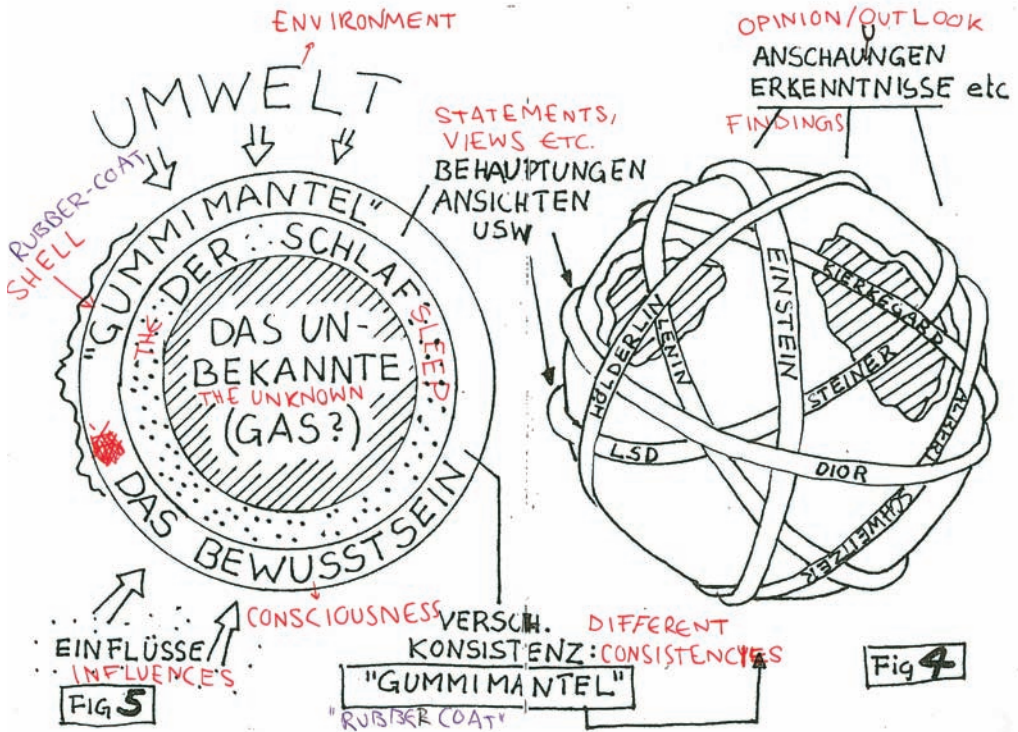 ENVIRONMENT
UMWELT
RUBBER-COAT
SHELL
"GUMMIMANTEL"
THE
DER SCHLAF
SLEEP
DAS UN-
BEKANNTE
THE UNKNOWN
(GAS?)
DAS BEWUSSTSEIN
CONSCIOUSNESS
EINFLÜSSE
INFLUENCES
FIG 5
STATEMENTS,
VIEWS ETC.
BEHAUPTUNGEN
ANSICHTEN
USW
VERSCH.
KONSISTENZ:
DIFFERENT
CONSISTENCYES
"GUMMIMANTEL"
"RUBBER COAT"
OPINION/OUTLOOK
ANSCHAUUNGEN
ERKENNTNISSE etc
FINDINGS
HÖLDERLIN
LENIN
EINSTEIN
KIERKEGARD
STEINER
LSD
DIOR
ALBERT
SCHWEITZER
Fig 4